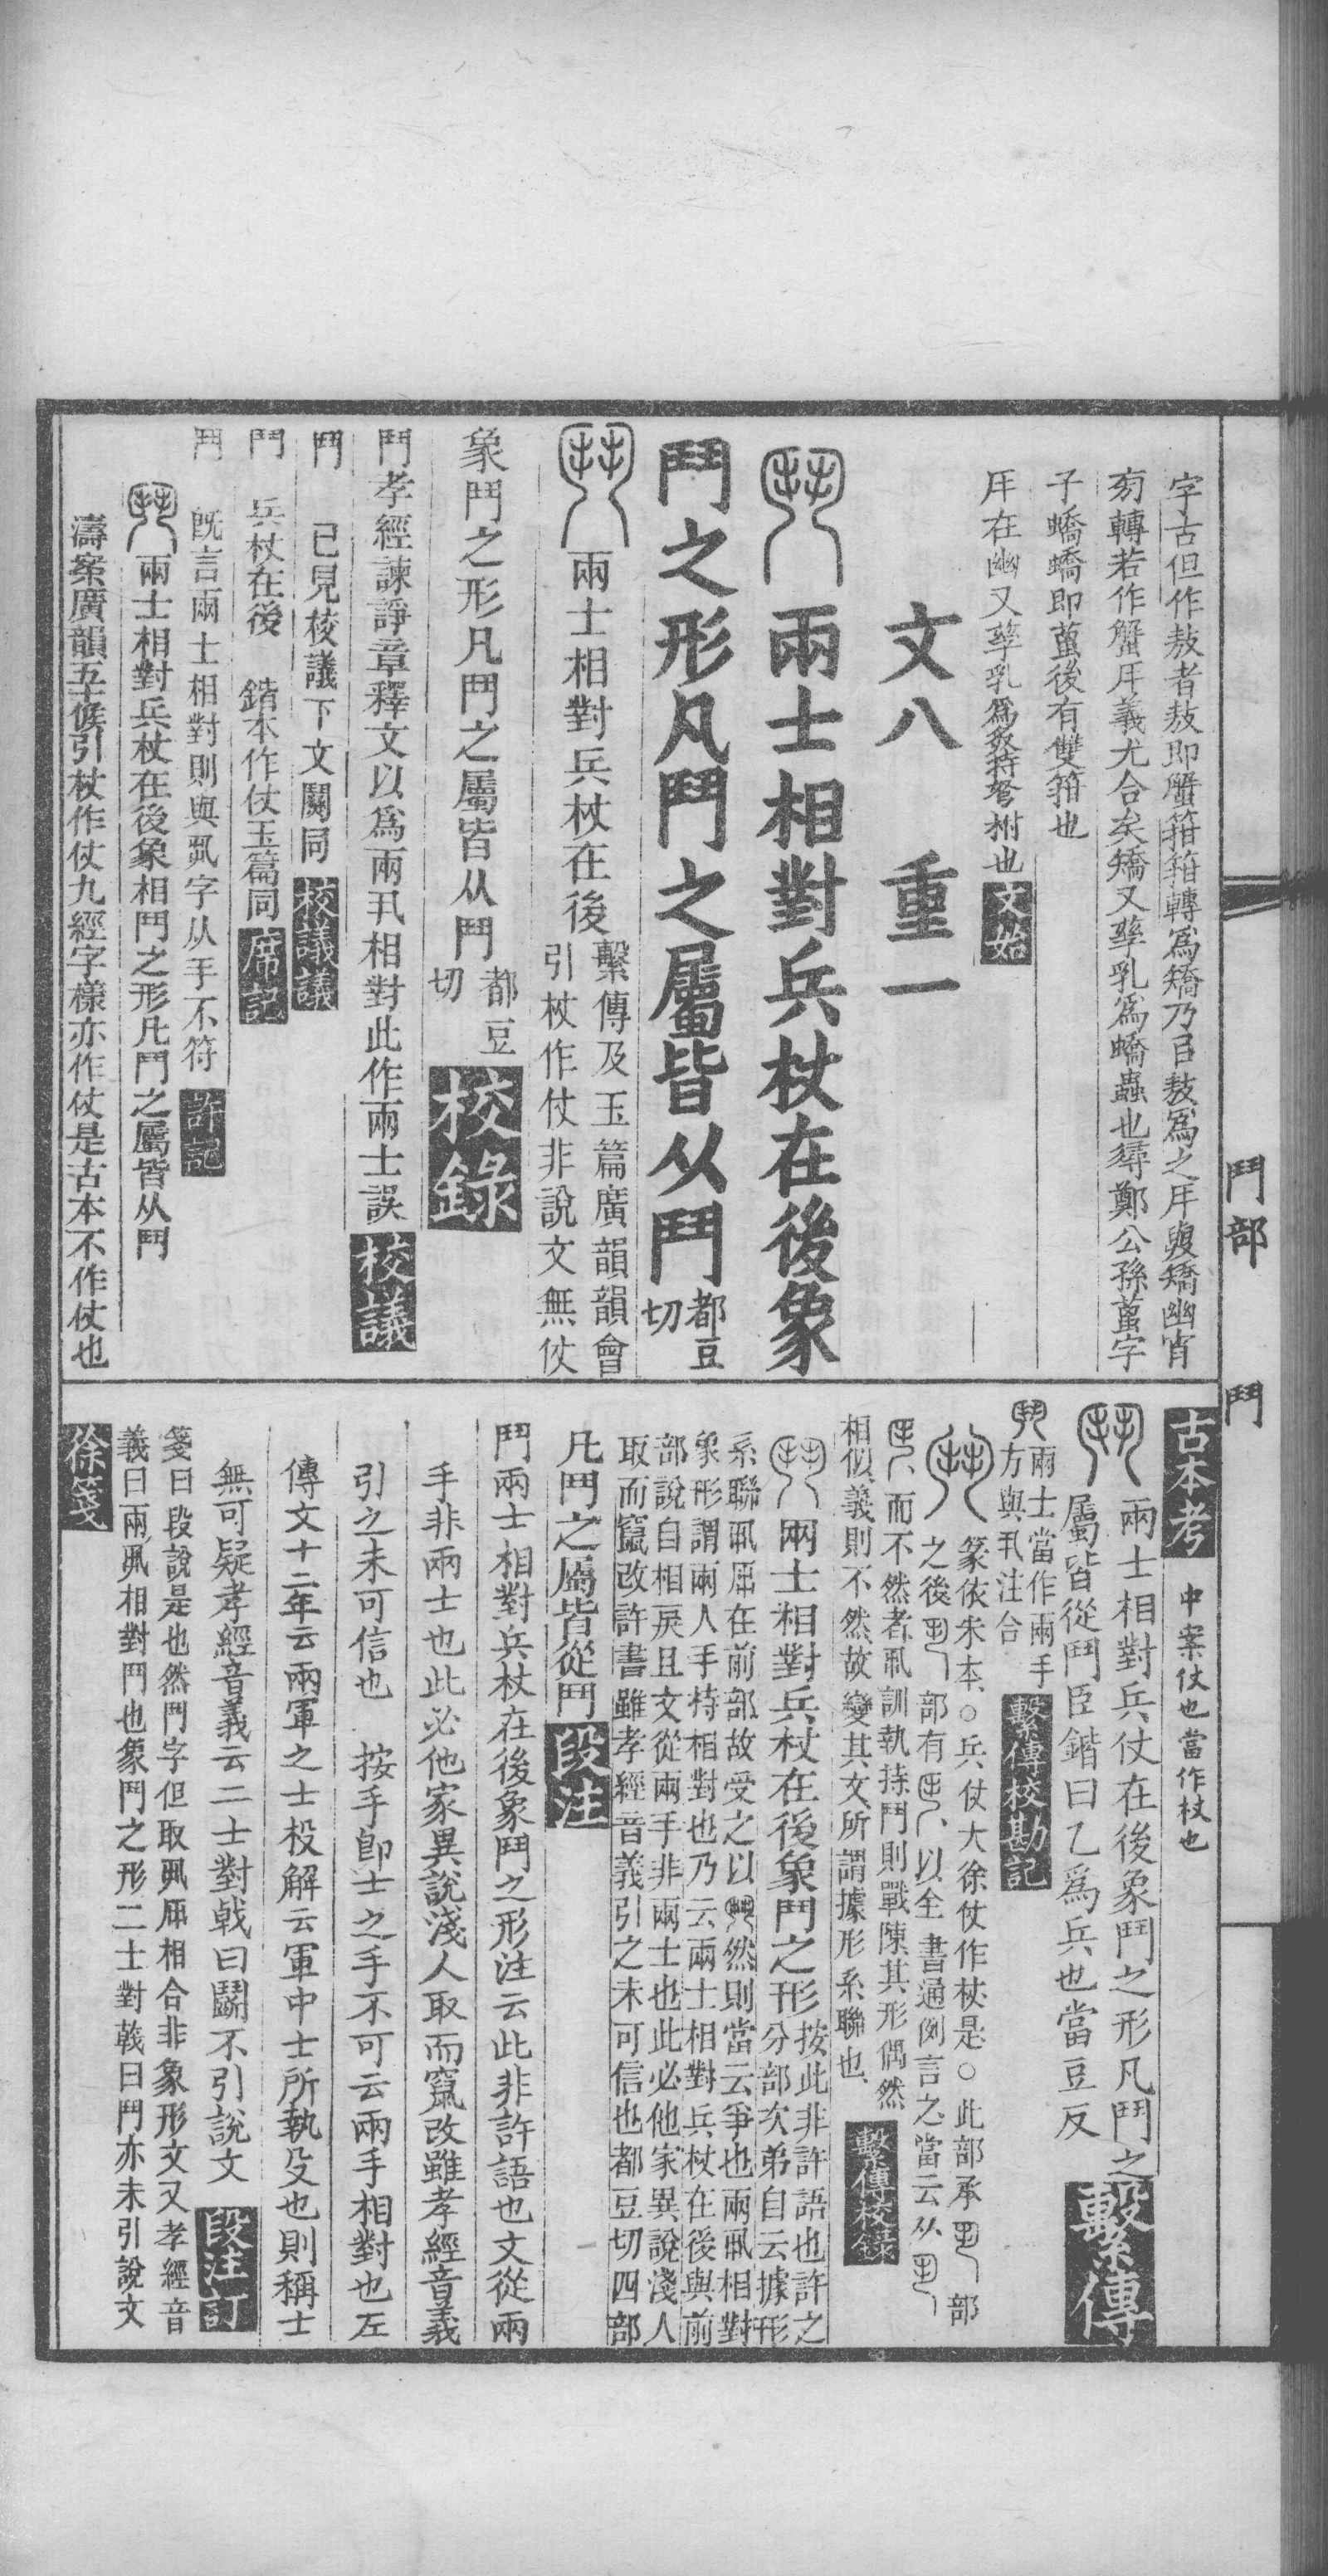 字古但作敖者敖即蟹箝箝轉爲矯乃㠯敖爲之𠃨與矯幽宵
旁轉若作蟹𠃨義尤合矣矯又孳乳爲蟜蟲也鄭公孫蠆字
子蟜蟜即蠆後有雙箝也
在幽又孳乳爲弣也 文始
文八 重一
兩士相對兵杖在後象
鬥之形凡鬥之屬皆从鬥 都豆切
兩士相對兵杖在後 繫傳及玉篇廣韻韻會引杖作仗非說文無仗
象鬥之形凡鬥之屬皆从鬥 都豆切 校錄
鬥孝經諫諍章釋文以爲兩丮相對此作兩士誤 校議
鬥 已見校議下文闕同 校議議
鬥 兵杖在後 鍇本作仗玉篇同 席記
鬥 既言兩士相對則與丮字从手不符 許記
兩士相對兵杖在後象相鬥之形凡鬥之屬皆从鬥
濤案廣韻五十候引杖作仗九經字樣亦作仗是古本不作仗也
鬥部 鬥
古本考 中案仗也當作杖也
兩士相對兵仗在後象鬥之形凡鬥之
屬皆從鬥臣鍇曰乙爲兵也當豆反 繫傳
鬥 兩士當作兩手方與丮注合 繫傳校勘記
篆依朱本○兵仗大徐仗作杖是○此部承部
之後部有以全書通例言之當云从
而不然者丮訓執持鬥則戰陳其形偶然
相似義則不然故變其文所謂據形系聯也 繫傳校錄
兩士相對兵杖在後象鬥之形 按此非許語也許之分部次弟自云據形
系聯丮𠃨在前部故受之以鬥然則當云爭也兩丮相對
象形謂兩人手持相對也乃云兩士相對兵杖在後與前
部說自相戾且文從兩手非兩士也此必他家異說淺人
取而竄改許書雖孝經音義引之未可信也都豆切四部
凡鬥之屬皆從鬥 段注
鬥兩士相對兵杖在後象鬥之形注云此非許語也文從兩
手非兩士也此必他家異說淺人取而竄改雖孝經音義
引之未可信也 按手卽士之手不可云兩手相對也左
傳文十二年云兩軍之士杸解云軍中士所執殳也則稱士
無可疑孝經音義云二士對戟曰鬭不引說文 段注訂
箋曰段說是也然鬥字但取丮𠃨相合非象形文又孝經音
義曰兩丮相對鬥也象鬥之形二士對戟曰鬥亦未引說文
徐箋